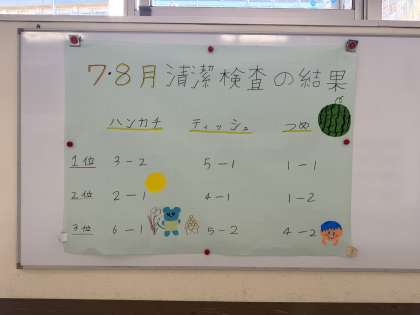 7・8月 清潔検査の結果
ハンカチ ティッシュ つめ
1位 3-2 5-1 1-1
2位 2-1 4-1 1-2
3位 6-1 5-2 4-2